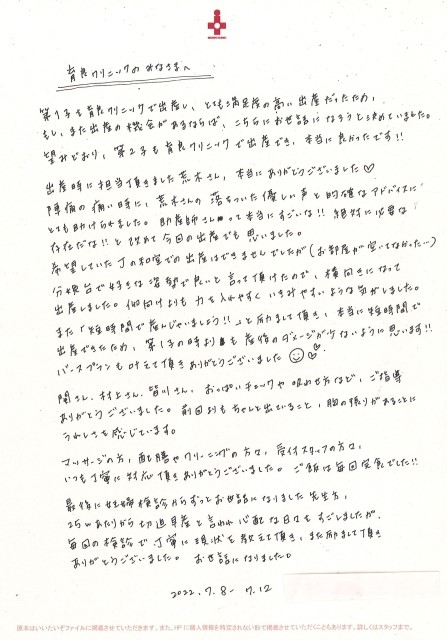 育良クリニックのみなさまへ
第1子も育良クリニックで出産し、とても満足度の高い出産だったため、
もし、また出産の機会があるならば、こちらにお世話になろうと決めていました。
望みどおり、第2子も育良クリニックで出産でき、本当に良かったです!!
出産時に担当頂きました荒木さん、本当にありがとうございました♡
陣痛の痛い時に、荒木さんの落ちついた優しい声と的確なアドバイスに
とても助けられました。助産師さんって本当にすごいな!! 絶対に必要な
存在だな!! と改めて今回の出産でも思いました。
希望していたJの和室での出産はできませんでしたが(お部屋が空いてなかった…)
分娩台で好きな姿勢で良いと言って頂けたので、横向きになって
出産しました。仰向けよりも力を入れやすくいきみやすいような気がしました。
また「短時間で産んじゃいましょう!!」と励まして頂き、本当に短時間で
出産できたため、第1子の時よりも産後のダメージが少ないように思います!!
バースプランも叶えて頂きありがとうございました
関さん、村上さん、皆川さん、おっぱいチェックや吸わせ方など、ご指導
ありがとうございました。前回よりもちゃんと出ていること、胸の張りがあることに
うれしさを感じています。
マッサージの方、配膳やクリーニングの方々、受付スタッフの方々、
いつも丁寧に対応頂きありがとうございました。ご飯は毎回完食でした!!
最後に妊婦検診からずっとお世話になりました先生方、
25wあたりから切迫早産と言われ心配な日々をすごしましたが、
毎回の検診で丁寧に現状を教えて頂き、また励まして頂き
ありがとうございました。お世話になりました。
2022.7.8-7.12
原本はいいたいぞファイルに掲載させていただきます。また、HPに個人情報を特定されない形で掲載させていただくこともあります。詳しくはスタッフまで。